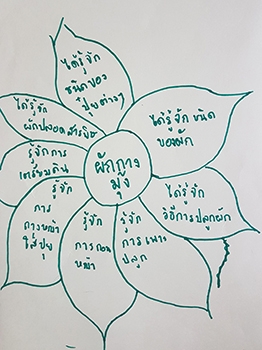 ผักกาง
มุ้ง
ได้รู้จัก
ชนิดของ
ปุ๋ยต่างๆ
ได้รู้จัก ชนิด
ของผัก
ได้รู้จัก
วิธีการปลูกผัก
รู้จัก
การเพาะ
ปลูก
รู้จัก
การถอน
หญ้า
รู้จัก
การ
ใส่ปุ๋ย
รู้จักการ
เตรียมดิน
ได้รู้จัก
ผักปลอดสารพิษ